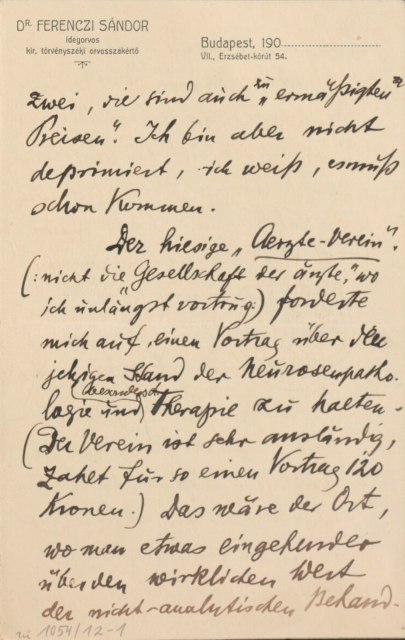 DR. FERENCZI SÁNDOR
idegorvos
kir. törvényszéki orvosszakértő
Budapest, 190
VII., Erzsébet-körút 54.
zwei, die sind auch zu „ermäßigten
Preisen“. Ich bin aber nicht
deprimiert, ich weiß, es muß
schon kommen.
Der hiesige „Aerzte-Verein“
(: nicht die „Gesellschaft der ärzte,“ wo
ich unlängst vortrug:) forderte
mich auf, einen Vortrag über den
jetzigen Stand der Neurosenpatho-
(besonders
logie und Therapie zu halten.
(Der Verein ist sehr anständig,
zahlt für so einen Vortrag 120
Kronen.) Das wäre der Ort,
wo man etwas eingehender
über den wirklichen Wert
der nicht-analytischen Behand-
1054/12-1